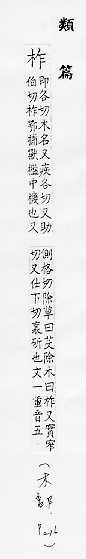 類篇
柞
即各切木名又疾各切又助
伯切柞鄂捕獸檻中機也又
側格切除草曰芟除木曰柞又實窄
切又仕下切衺斫也文一重音五
（木部